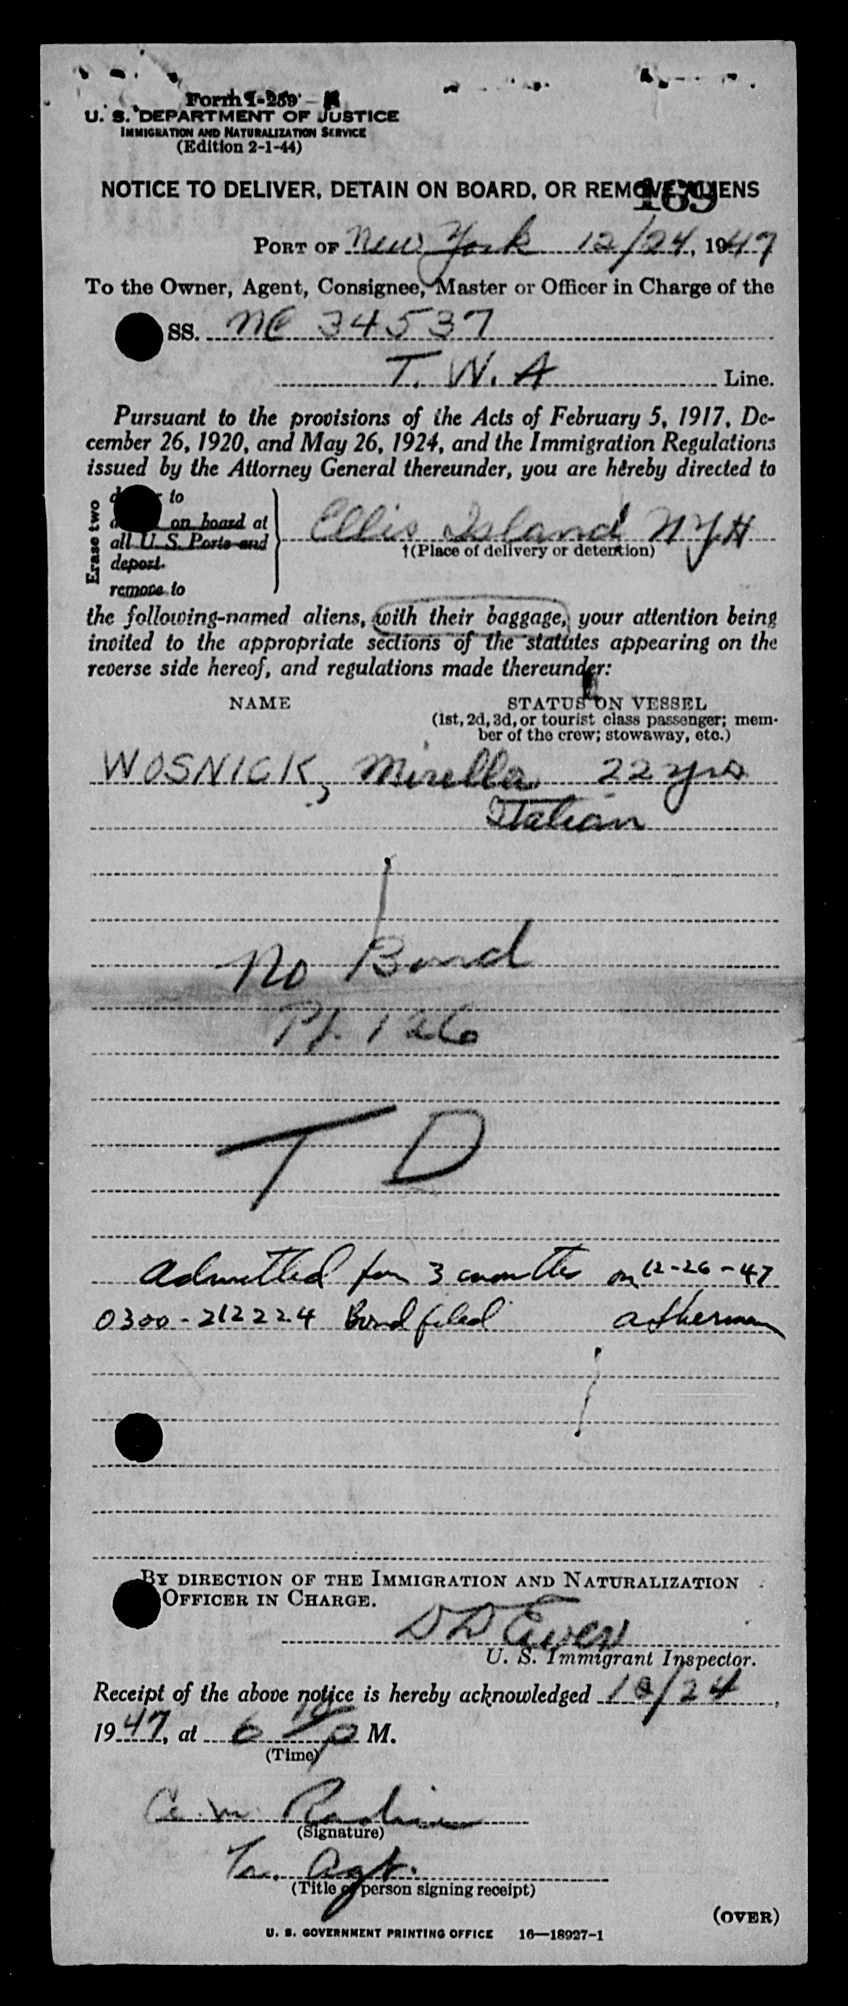 Form I-259
U. S. DEPARTMENT OF JUSTICE
IMMIGRATION AND NATURALIZATION SERVICE
(Edition 2-1-44)
169
NOTICE TO DELIVER, DETAIN ON BOARD, OR REMOVE ALIENS
PORT OF New York 12/24, 1947
To the Owner, Agent, Consignee, Master or Officer in Charge of the
SS. NC 34537
T. W. A Line.
Pursuant to the provisions of the Acts of February 5, 1917, De-
cember 26, 1920, and May 26, 1924, and the Immigration Regulations
issued by the Attorney General thereunder, you are hereby directed to
Erase two
to
on board at
all U. S. Ports and
deport.
remove to
Ellis Island NYH
†(Place of delivery or detention)
the following-named aliens, with their baggage, your attention being
invited to the appropriate sections of the statutes appearing on the
reverse side hereof, and regulations made thereunder:
NAME STATUS ON VESSEL
(1st, 2d, 3d, or tourist class passenger; mem-
ber of the crew; stowaway, etc.)
WOSNICK, Mirella 22 yrs
Italian
No Bond
126
T D
Admitted for 3 months on 12-26-47
0300-212224 Bond filed A Sherman
BY DIRECTION OF THE IMMIGRATION AND NATURALIZATION
OFFICER IN CHARGE.
U. S. Immigrant Inspector.
Receipt of the above notice is hereby acknowledged 12/24,
1947, at 6 10 p M.
(Time)
(Signature)
Agt.
(Title of person signing receipt)
(OVER)
U. S. GOVERNMENT PRINTING OFFICE 16—18927-1